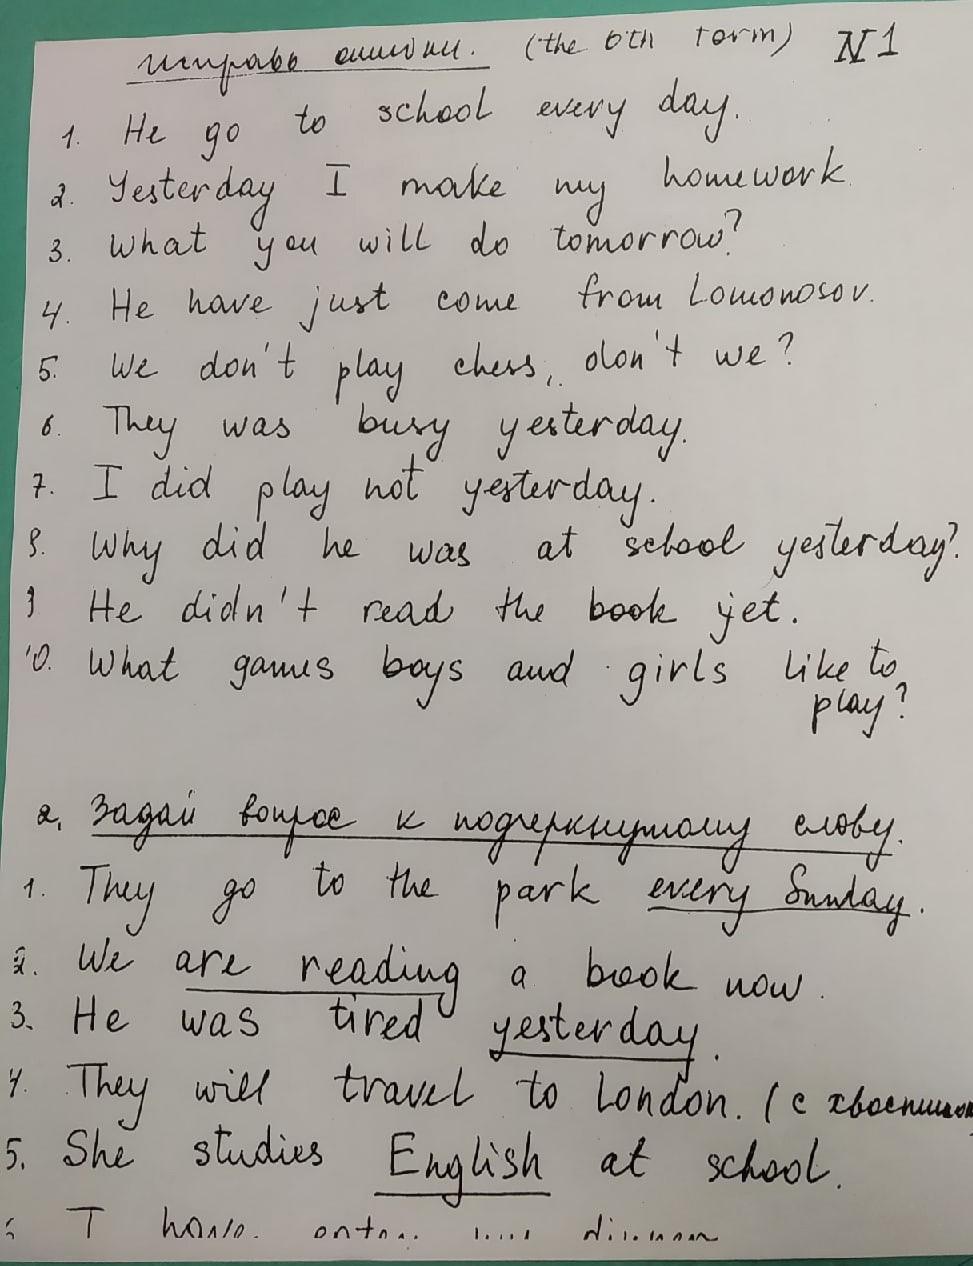 Исправь ошибки. (the 6th term) N1
1. He go to school every day.
2. Yesterday I make my homework
3. What you will do tomorrow?
4. He have just come from Lomonosov.
5. We don't play chess, don't we?
6. They was busy yesterday.
7. I did play not yesterday.
8. Why did he was at school yesterday?
9 He didn't read the book yet.
10. What games boys and girls like to
play?
2. Задай вопрос к подчеркнутому слову.
1. They go to the park every Sunday.
2. We are reading a book now.
3. He was tired yesterday.
4. They will travel to London. (с хвостиком
5. She studies English at school.
I have